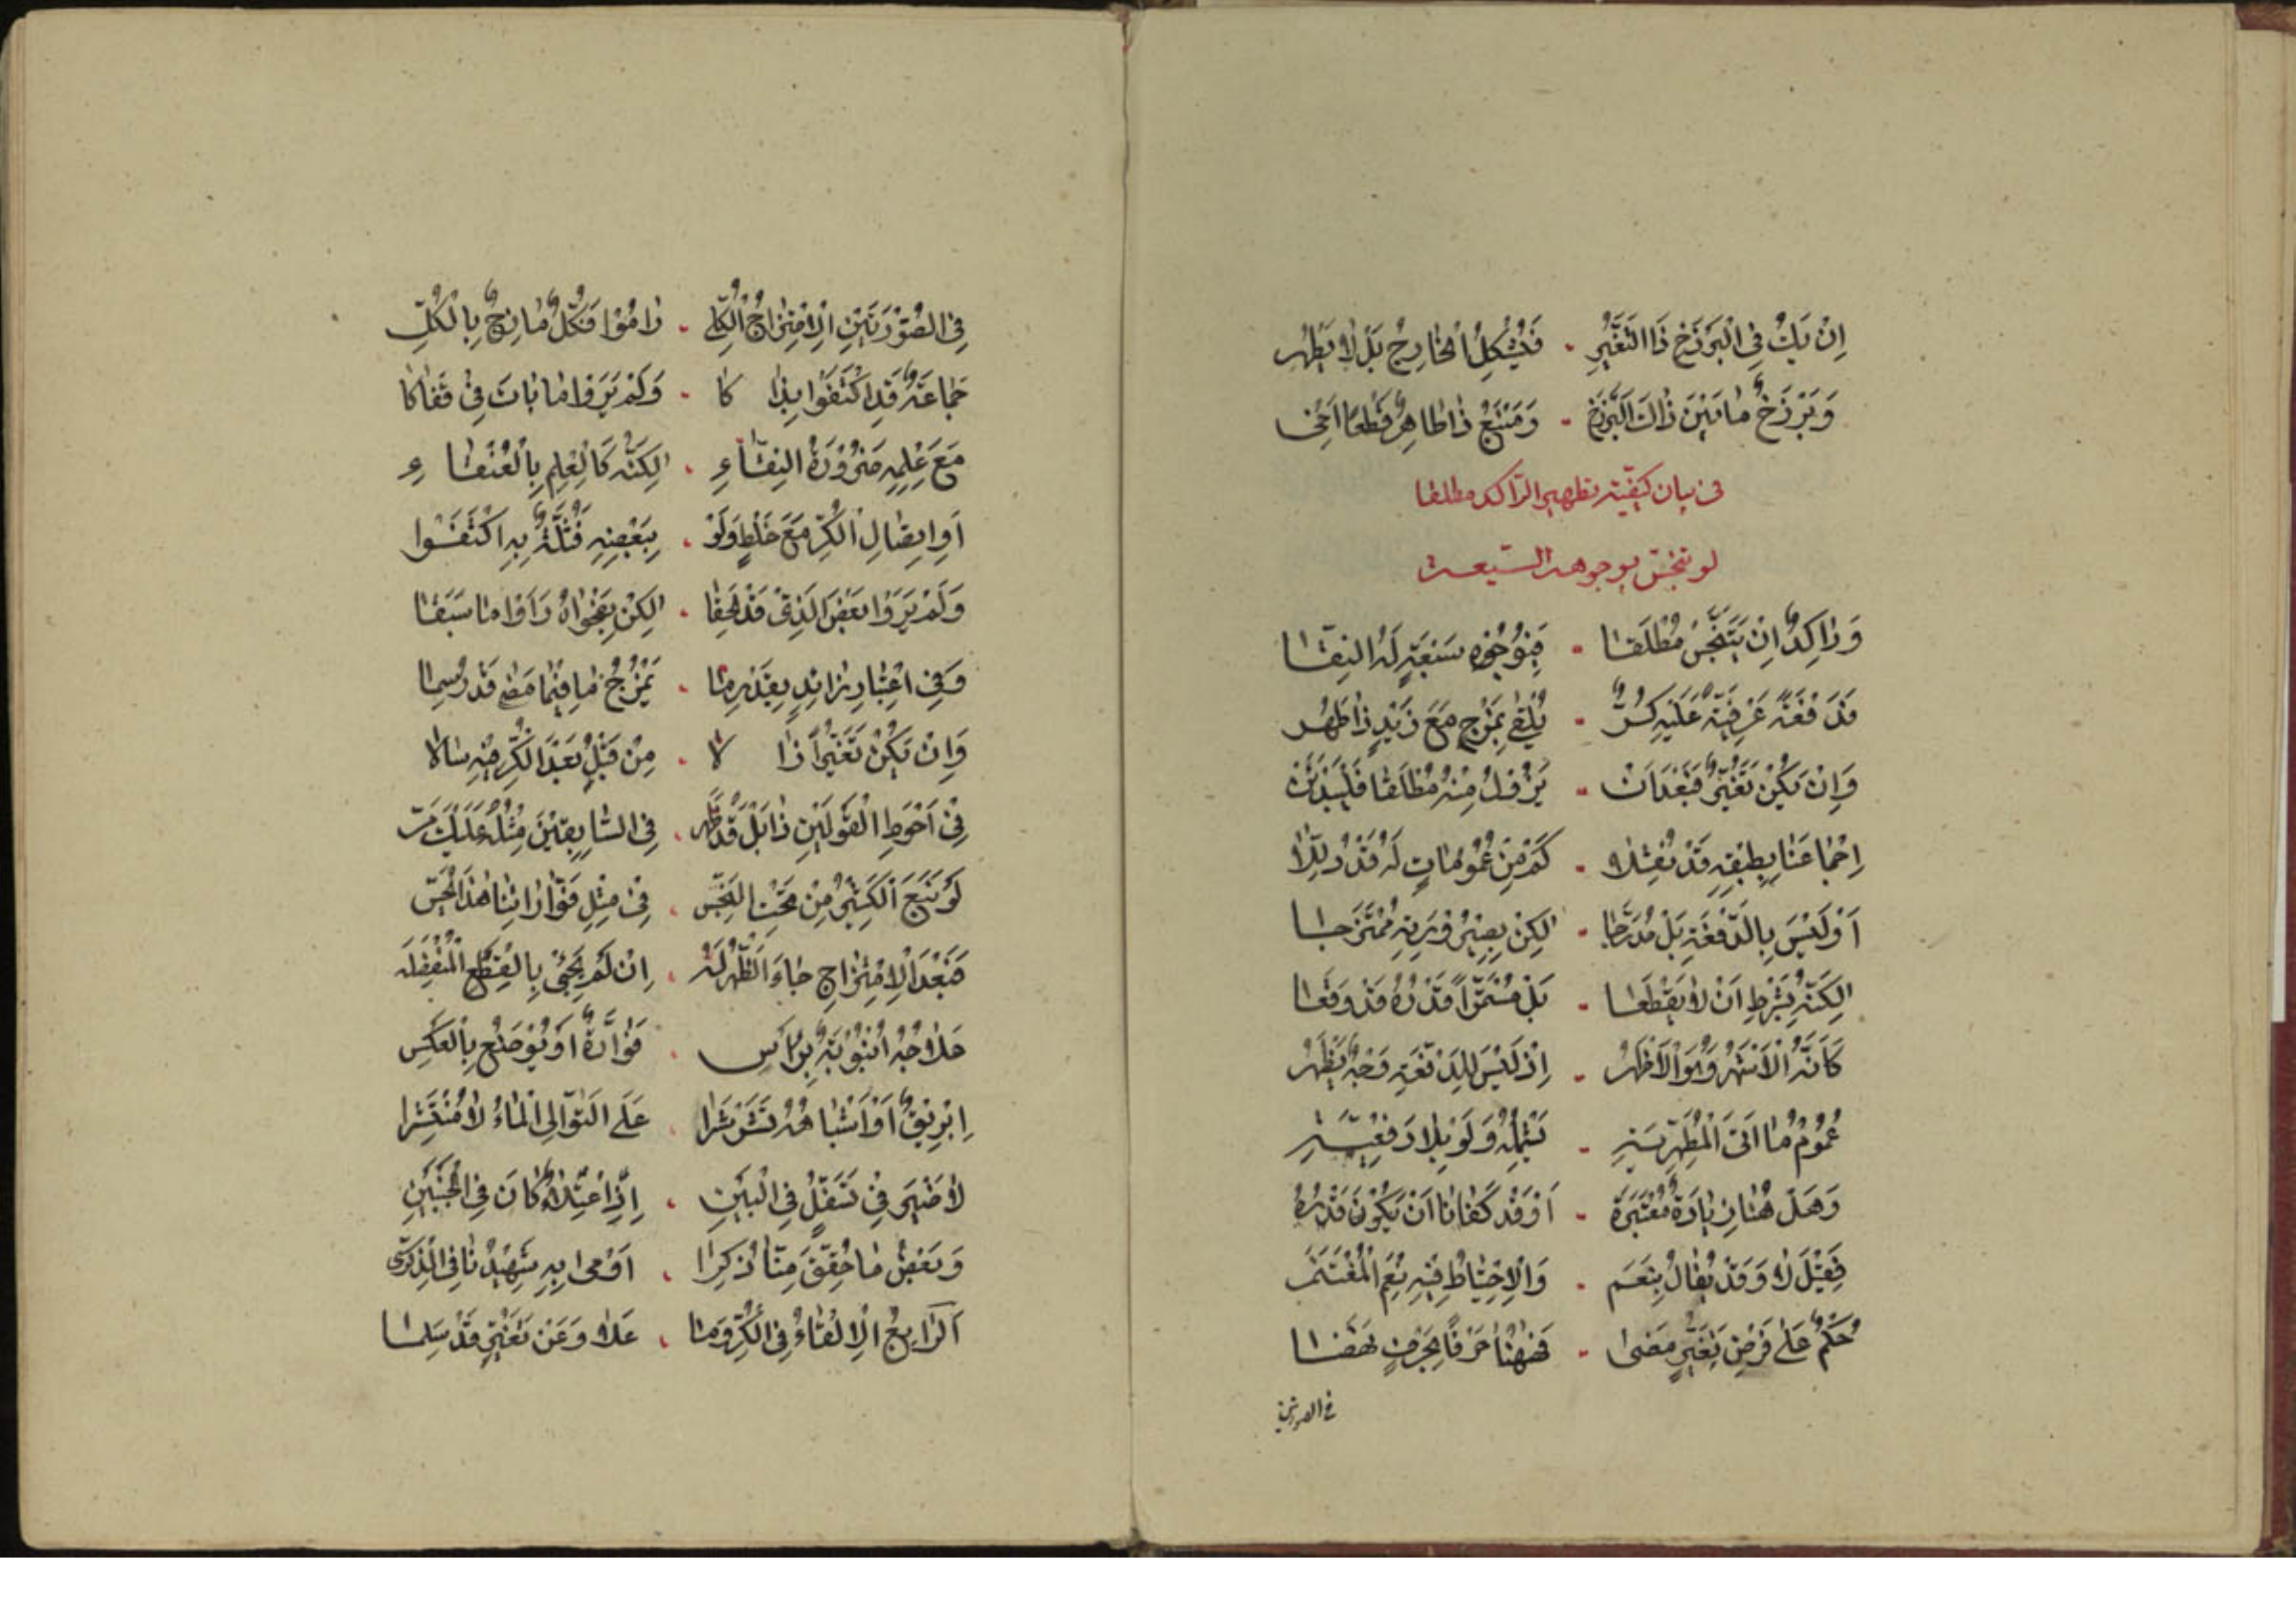 اِنْ يَكُ فِي الْبَرْزَخِ ذَا التَّغَيُّرِ ۰ فَيُشْكِلُ الْخَارِجُ بَلْ لَا يَطْهُرِ
وَبَرْزَخٌ مَا بَيْنَ ذَاكَ الْبَرْزَخِ ۰ وَمَنْبَعٌ ذَا طَاهِرٌ قَطْعًا اَخِي
في بيان كيفيّة تطهير الرّاكد مطلقا
لو تنجّس بوجوهه السّبعة
وَرَاكِدٌ اِنْ يَتَنَجَّسْ مُطْلَقَا ۰ فَبِوُجُوهٍ سَبْعَةٍ لَهُ النِّقَا
فَدَفْعَةً عُرْفِيَّةً عَلَيْهِ كُرٌّ ۰ يُلْقٰى بِمَزْجٍ مَعَ زَيْدٍ ذَا طَهُر
وَاِنْ يَكُنْ تَغَيُّرٌ فَبَعْدَ اَنْ ۰ يَزُولَ مِنْهُ مُطْلَقًا فَلْيَذْيَنْ
اِجْمَاعُنَا بِطِبْقِهِ قَدْ نُقِلَا ۰ كَمْ مِنْ عُمُومَاتٍ لَهُ قَدْ دَلَّلَا
اَوْ لَيْسَ بِالدَّفْعَةِ بَلْ مُدَرَّجَا ۰ لٰكِنْ يَصِيرُ وَزِينَةِ مُمْتَزِجَا
لٰكِنَّهُ بِشَرْطِ اَنْ لَا يُقْطَعَا ۰ بَلْ مُسْتَمِرًّا قَدْرُهُ قَدْ وَقَعَا
كَاَنَّهُ الْاَشْهَرُ وَهُوَ الْاَظْهَرُ ۰ اِذْ لَيْسَ لِلدَّفْعَةِ وَجْهٌ يَظْهَرُ
عُمُومُ مَا اَتٰى الْمُطَهِّرِيَّةِ ۰ يَشْمَلُهُ وَلَوْ بِلَا دَفْعِيَّةِ
وَهَلْ هُنَا زِيَادَةٌ مُعْتَبَرَة ۰ اَوْ قَدْ كَفَانَا اَنْ يَكُونَ قَدْرَهُ
فَقِيلَ لَا وَقَدْ يُقَالُ بِنَعَمْ ۰ وَالْاِحْتِيَاطُ فِيهِ نِعْمَ الْمُغْتَنَم
حُكْمٌ عَلٰى فَرْضِ تَغَيُّرٍ مَضٰى ۰ فَهٰهُنَا حَرْفًا بِحَرْفٍ نَهَضَا
في الصورتين
فِي الصُّورَتَيْنِ الْاِمْتِزَاجُ الْكُلِّي ۰ رَامُوا فَكُلٌّ مَازِجٌ بِالْكُلِّ
جَمَاعَةٌ قَدِ اكْتَفَوْا بِذَا كَا ۰ وَلَمْ يَرَوْا مَا بَاتَ فِي قَفَاكَا
مَعَ عِلْمِهِ ضَرُورَةُ النِّقَاءِ ۰ لٰكِنَّهُ كَالْعِلْمِ بِالْعَنْقَاءِ
اَوِ اتِّصَالِ الْكُرِّ مَعَ خَلْطٍ وَلَوْ ۰ بِبَعْضِهِ فَثُلَّةٌ بِهِ اكْتَفَوْا
وَلَمْ يَرَوْا بَعْضَ الَّذِي قَدْ لَحِقَا ۰ لٰكِنْ بِفَحْوَاهُ رَاَوْا مَا سَبَقَا
وَفِي اعْتِبَارِ زَائِدٍ بِقَدْرِ مَا ۰ يَمْزُجُ مَا فِيمَا مَضٰى قَدْ رُسِمَا
وَاِنْ يَكُنْ تَغَيُّرًا ذَا لَا ۰ مِنْ قَبْلُ بَعْدَ الْكُرِّ فِيهِ سَالَا
فِي اَحْوَطِ الْقَوْلَيْنِ ذَا بَلْ قَدْ ظَهَر ۰ فِي السَّابِقَيْنِ مِثْلُهُ عَلَيْكَ مَرّ
لَوْ نَبَعَ الْكَثِيرُ مِنْ تَحْتِ النَّجِس ۰ فِي مِثْلِ فَوَّارَاتِنَا هٰذَا يُحَسّ
فَبَعْدَ الْاِمْتِزَاجِ جَاءَ الطُّهْرُ لَهُ ۰ اِنْ لَمْ يَجِئْ بِالْقِطَعِ الْمُنْفَصِلَه
حَلَاوَجُهُ اُنْبُوبَةٌ بِرَاْسِ ۰ فَوَّارَةٌ اَوْ يُوضَعُ بِالْعَكْسِ
اِبْرِيقٌ اَوْ اَشْبَاهُهُ تَشَرْشَرَا ۰ عَلَى التَّوَالِي الْمَاءُ لَا مُنْتَثِرَا
لَا ضَيْرَ فِي تَسَفُّلٍ فِي الْبَيْنِ ۰ اِذَا اعْتِلَاءٌ كَانَ فِي الْجَنْبَيْنِ
وَبَعْضُ مَا حُقِّقَ مِمَّا ذُكِرَا ۰ اَوْمٰى بِهِ شَهِيدُنَا فِي الذِّكْرٰى
اَلرَّابِعُ الْاِلْقَاءُ فِي الْكُرِّ وَمَا ۰ عَلَاهُ وَعَنْ تَغَيُّرٍ قَدْ سَلِمَا